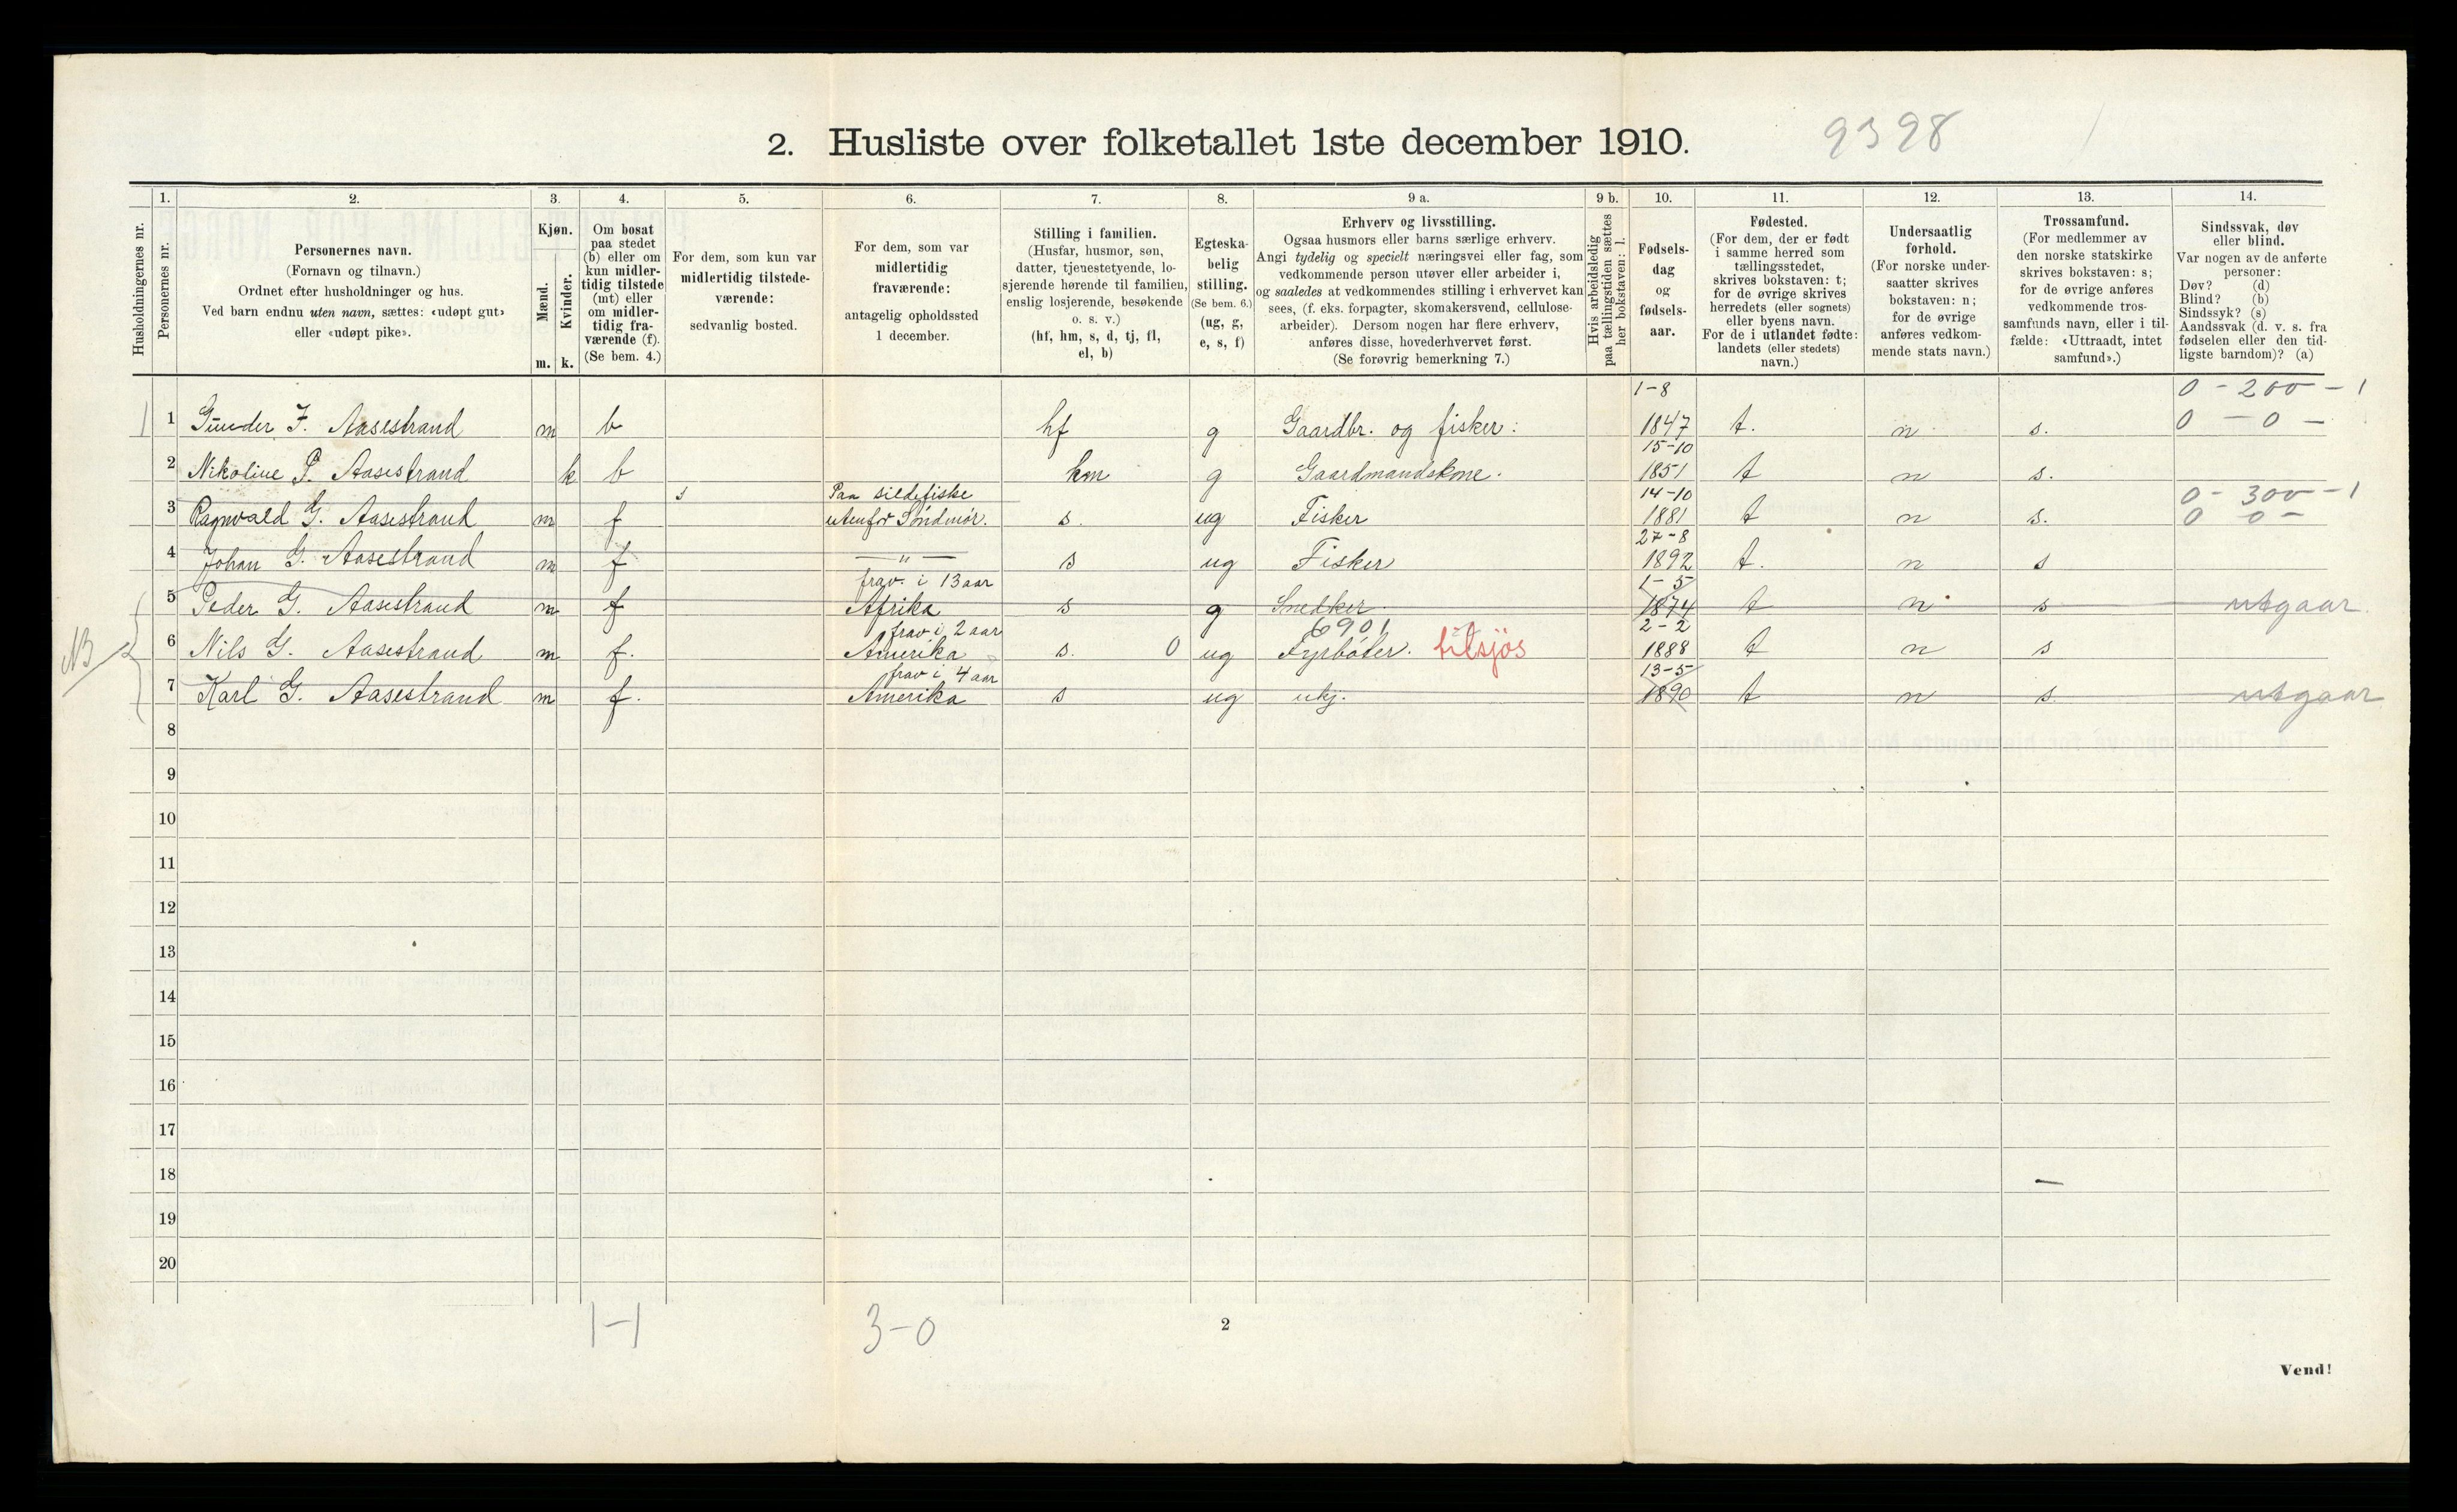 2. Husliste over folketallet 1ste december 1910.
9398
Husholdningernes nr.
1.
Personernes nr.
2.
Personernes navn.
(Fornavn og tilnavn.)
Ordnet efter husholdninger og hus.
Ved barn endnu uten navn, sættes: «udøpt gut»
eller «udøpt pike».
3.
Kjøn.
Mænd.
Kvinder.
m. k.
4.
Om bosat
paa stedet
(b) eller om
kun midler-
tidig tilstede
(mt) eller
om midler-
tidig fra-
værende (f).
(Se bem. 4.)
5.
For dem, som kun var
midlertidig tilstede-
værende:
sedvanlig bosted.
6.
For dem, som var
midlertidig
fraværende:
antagelig opholdssted
1 december.
7.
Stilling i familien.
(Husfar, husmor, søn,
datter, tjenestetyende, lo-
sjerende hørende til familien,
enslig losjerende, besøkende
o. s. v.)
(hf, hm, s, d, tj, fl,
el, b)
8.
Egteska-
belig
stilling.
(Se bem. 6.)
(ug, g,
e, s, f)
9 a.
Erhverv og livsstilling.
Ogsaa husmors eller barns særlige erhverv.
Angi tydelig og specielt næringsvei eller fag, som
vedkommende person utøver eller arbeider i,
og saaledes at vedkommendes stilling i erhvervet kan
sees, (f. eks. forpagter, skomakersvend, cellulose-
arbeider). Dersom nogen har flere erhverv,
anføres disse, hovederhvervet først.
(Se forøvrig bemerkning 7.)
9 b.
Hvis arbeidsledig
paa tællingstiden sættes
her bokstaven: l.
10.
Fødsels-
dag
og
fødsels-
aar.
11.
Fødested.
(For dem, der er født
i samme herred som
tællingsstedet,
skrives bokstaven: t;
for de øvrige skrives
herredets (eller sognets)
eller byens navn.
For de i utlandet fødte:
landets (eller stedets)
navn.)
12.
Undersaatlig
forhold.
(For norske under-
saatter skrives
bokstaven: n;
for de øvrige
anføres vedkom-
mende stats navn.)
13.
Trossamfund.
(For medlemmer av
den norske statskirke
skrives bokstaven: s;
for de øvrige anføres
vedkommende tros-
samfunds navn, eller i til-
fælde: «Uttraadt, intet
samfund».)
14.
Sindssvak, døv
eller blind.
Var nogen av de anførte
personer:
Døv? (d)
Blind? (b)
Sindssyk? (s)
Aandssvak (d. v. s. fra
fødselen eller den tid-
ligste barndom)? (a)
1-8 0 - 200 - 1
1 1 Gunder J. Aasestrand m b hf g Gaardbr. og fisker: 1847 t. n s. 0 - 0 -
15-10
2 Nikoline P. Aasestrand k b hm g Gaardmandskone. 1851 t n s.
s Paa sildefiske 14-10 0 - 300 - 1
3 Ragnvald G. Aasestrand m f utenfor Söndmör. s. ug Fisker 1881 t n s. 0 0 -
27-8
4 Johan G. Aasestrand m f — " — s ug Fisker 1892 t. n s
frav. i 13 aar 1-5
5 Peder G. Aasestrand m f Afrika s g Snedker 1874 t n s utgaar.
frav i 2 aar 6901 2-2
NB 6 Nils G. Aasestrand m f. Amerika s. 0 ug Fyrböter. tilsjös 1888 t n s
frav i 4 aar 13-5
7 Karl G. Aasestrand m f. Amerika s ug ukj. 1890 t n s. utgaar
8
9
10
11
12
13
14
15
16
17
18
19
20
1-1 3-0
2
Vend!